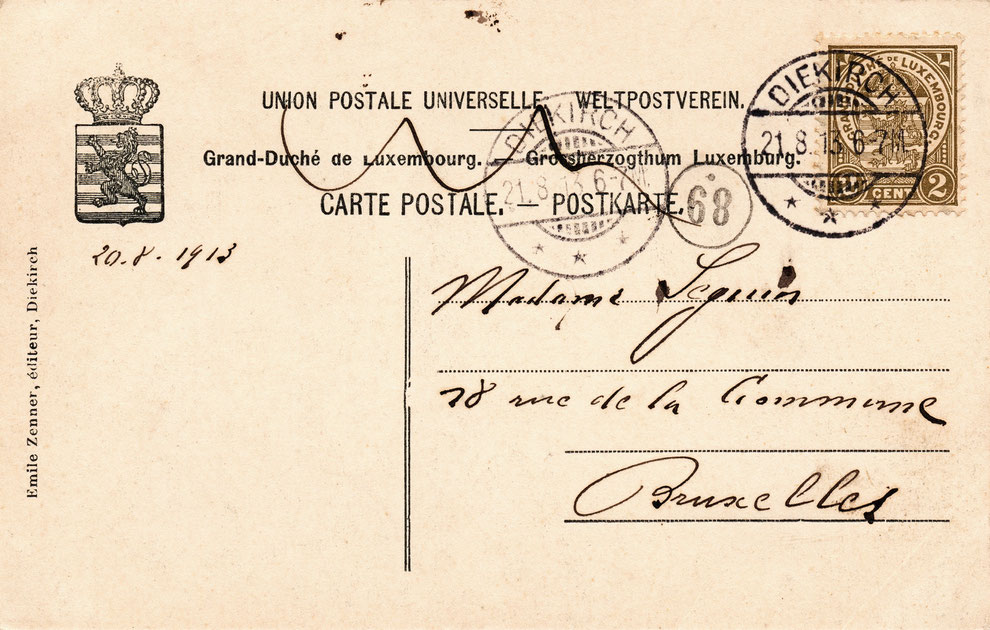 UNION POSTALE UNIVERSELLE. WELTPOSTVEREIN.
Grand-Duché de Luxembourg. — Grossherzogthum Luxemburg.
CARTE POSTALE. — POSTKARTE.
DIEKIRCH
21.8.13.6-7M
68
DIEKIRCH
21.8.13.6-7M
GRAND DUCHÉ DE LUXEMBOURG
2 CENT 2
20.8.1913
Madame Seguin
18 rue de la Commune
Bruxelles
Emile Zenner, éditeur, Diekirch